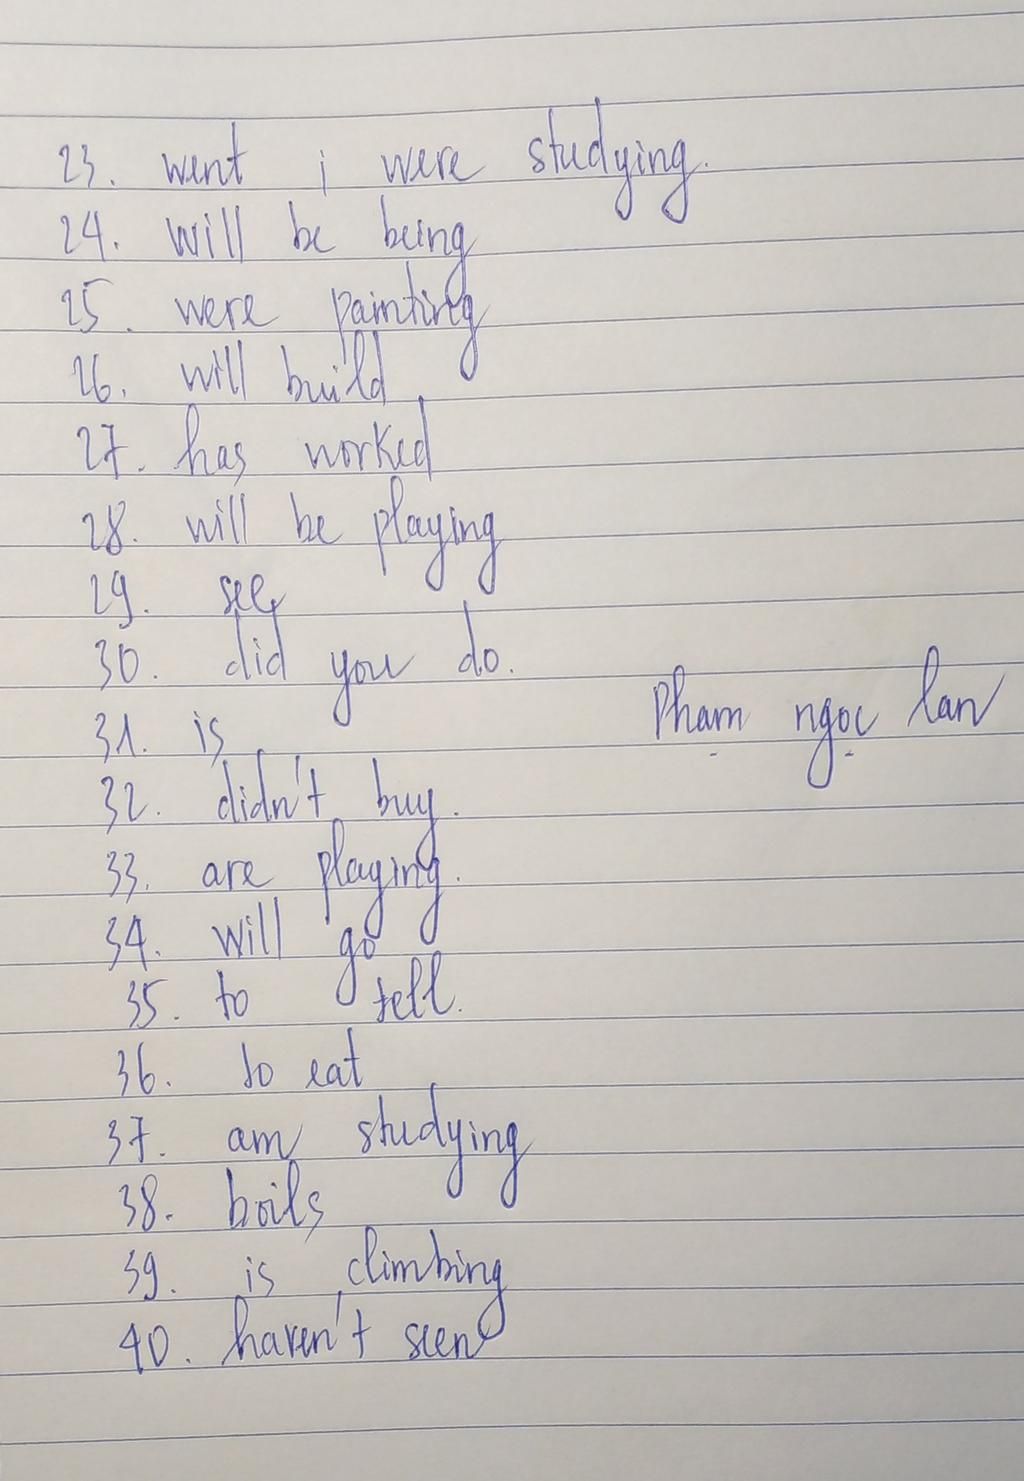 23. went ; were studying.
24. will be being
25. were painting
26. will build
27. has worked
28. will be playing
29. see
30. did you do.
Phạm ngọc lan
31. is
32. didn't buy.
33. are playing.
34. will go
35. to tell.
36. to eat
37. am studying
38. boils
39. is climbing
40. haven't seen